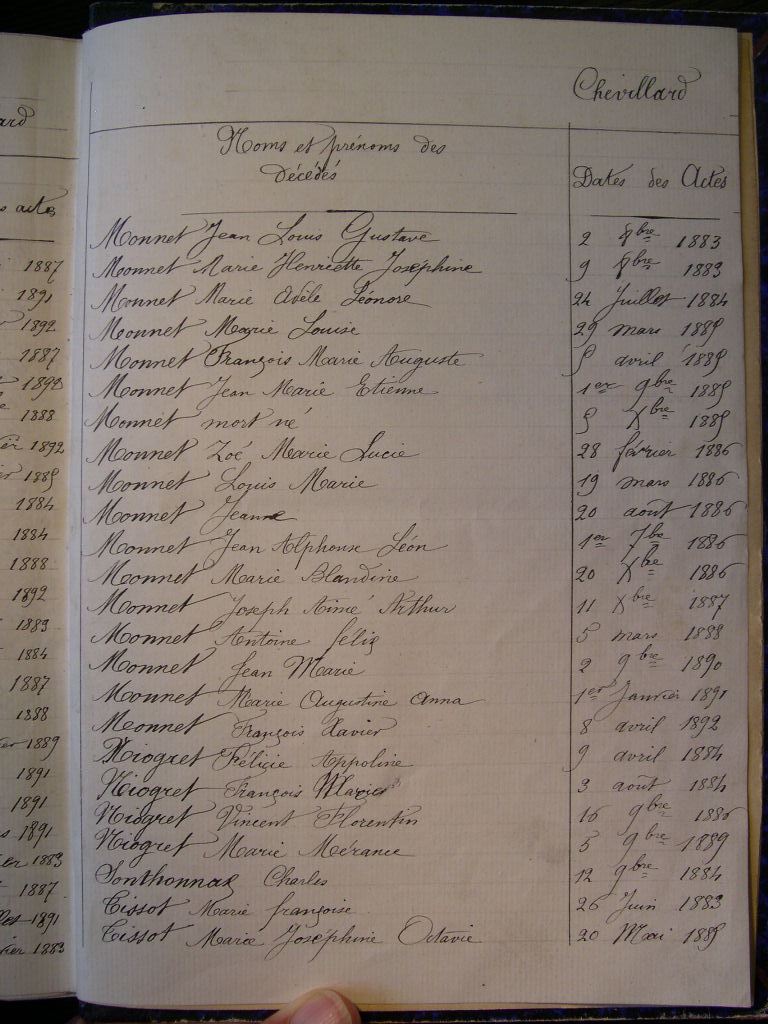 Chevillard
Noms et prénoms des
Décédés
Dates des Actes
Monnet Jean Louis Gustave 2 8bre 1883
Monnet Marie Henriette Joséphine 9 8bre 1883
Monnet Marie Adèle Léonore 24 Juillet 1884
Monnet Marie Louise 29 mars 1885
Monnet François Marie Auguste 5 avril 1885
Monnet Jean Marie Etienne 1er 9bre 1885
Monnet mort né 5 Xbre 1885
Monnet Zoé Marie Lucie 28 février 1886
Monnet Louis Marie 19 mars 1886
Monnet Jeanne 20 août 1886
Monnet Jean Alphonse Léon 1er 7bre 1886
Monnet Marie Blandine 20 Xbre 1886
Monnet Joseph Aimé Arthur 11 Xbre 1887
Monnet Antoine félix 5 mars 1888
Monnet Jean Marie 2 9bre 1890
Monnet Marie Augustine Anna 1er Janvier 1891
Monnet François Xavier 8 avril 1892
Niogret Félicie Appoline 9 avril 1884
Niogret François Marie 3 août 1884
Niogret Vincent Florentin 16 9bre 1886
Niogret Marie Mérance 5 9bre 1889
Sonthonnax Charles 12 9bre 1884
Tissot Marie françoise 26 Juin 1883
Tissot Marie Joséphine Octavie 20 Mai 1885
ard
s actes
1887
1891
1892
1887
1888
er 1892
1885
1884
1884
1888
1892
1883
1884
1887
1888
er 1889
1891
1891
s 1891
er 1883
1887
1891
vier 1883